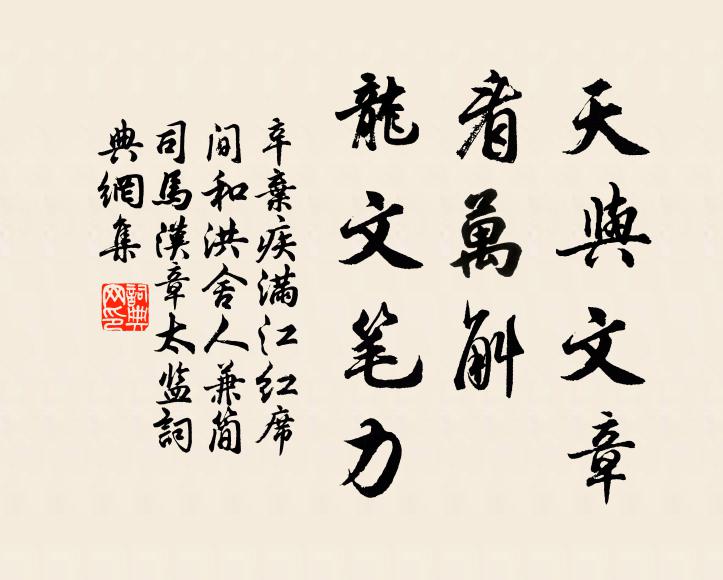 天與文章
看萬斛
龍文笔力
辛棄疾滿江红席
间和洪舍人兼简
司馬漢章太监詞
典網集
詞典
网印